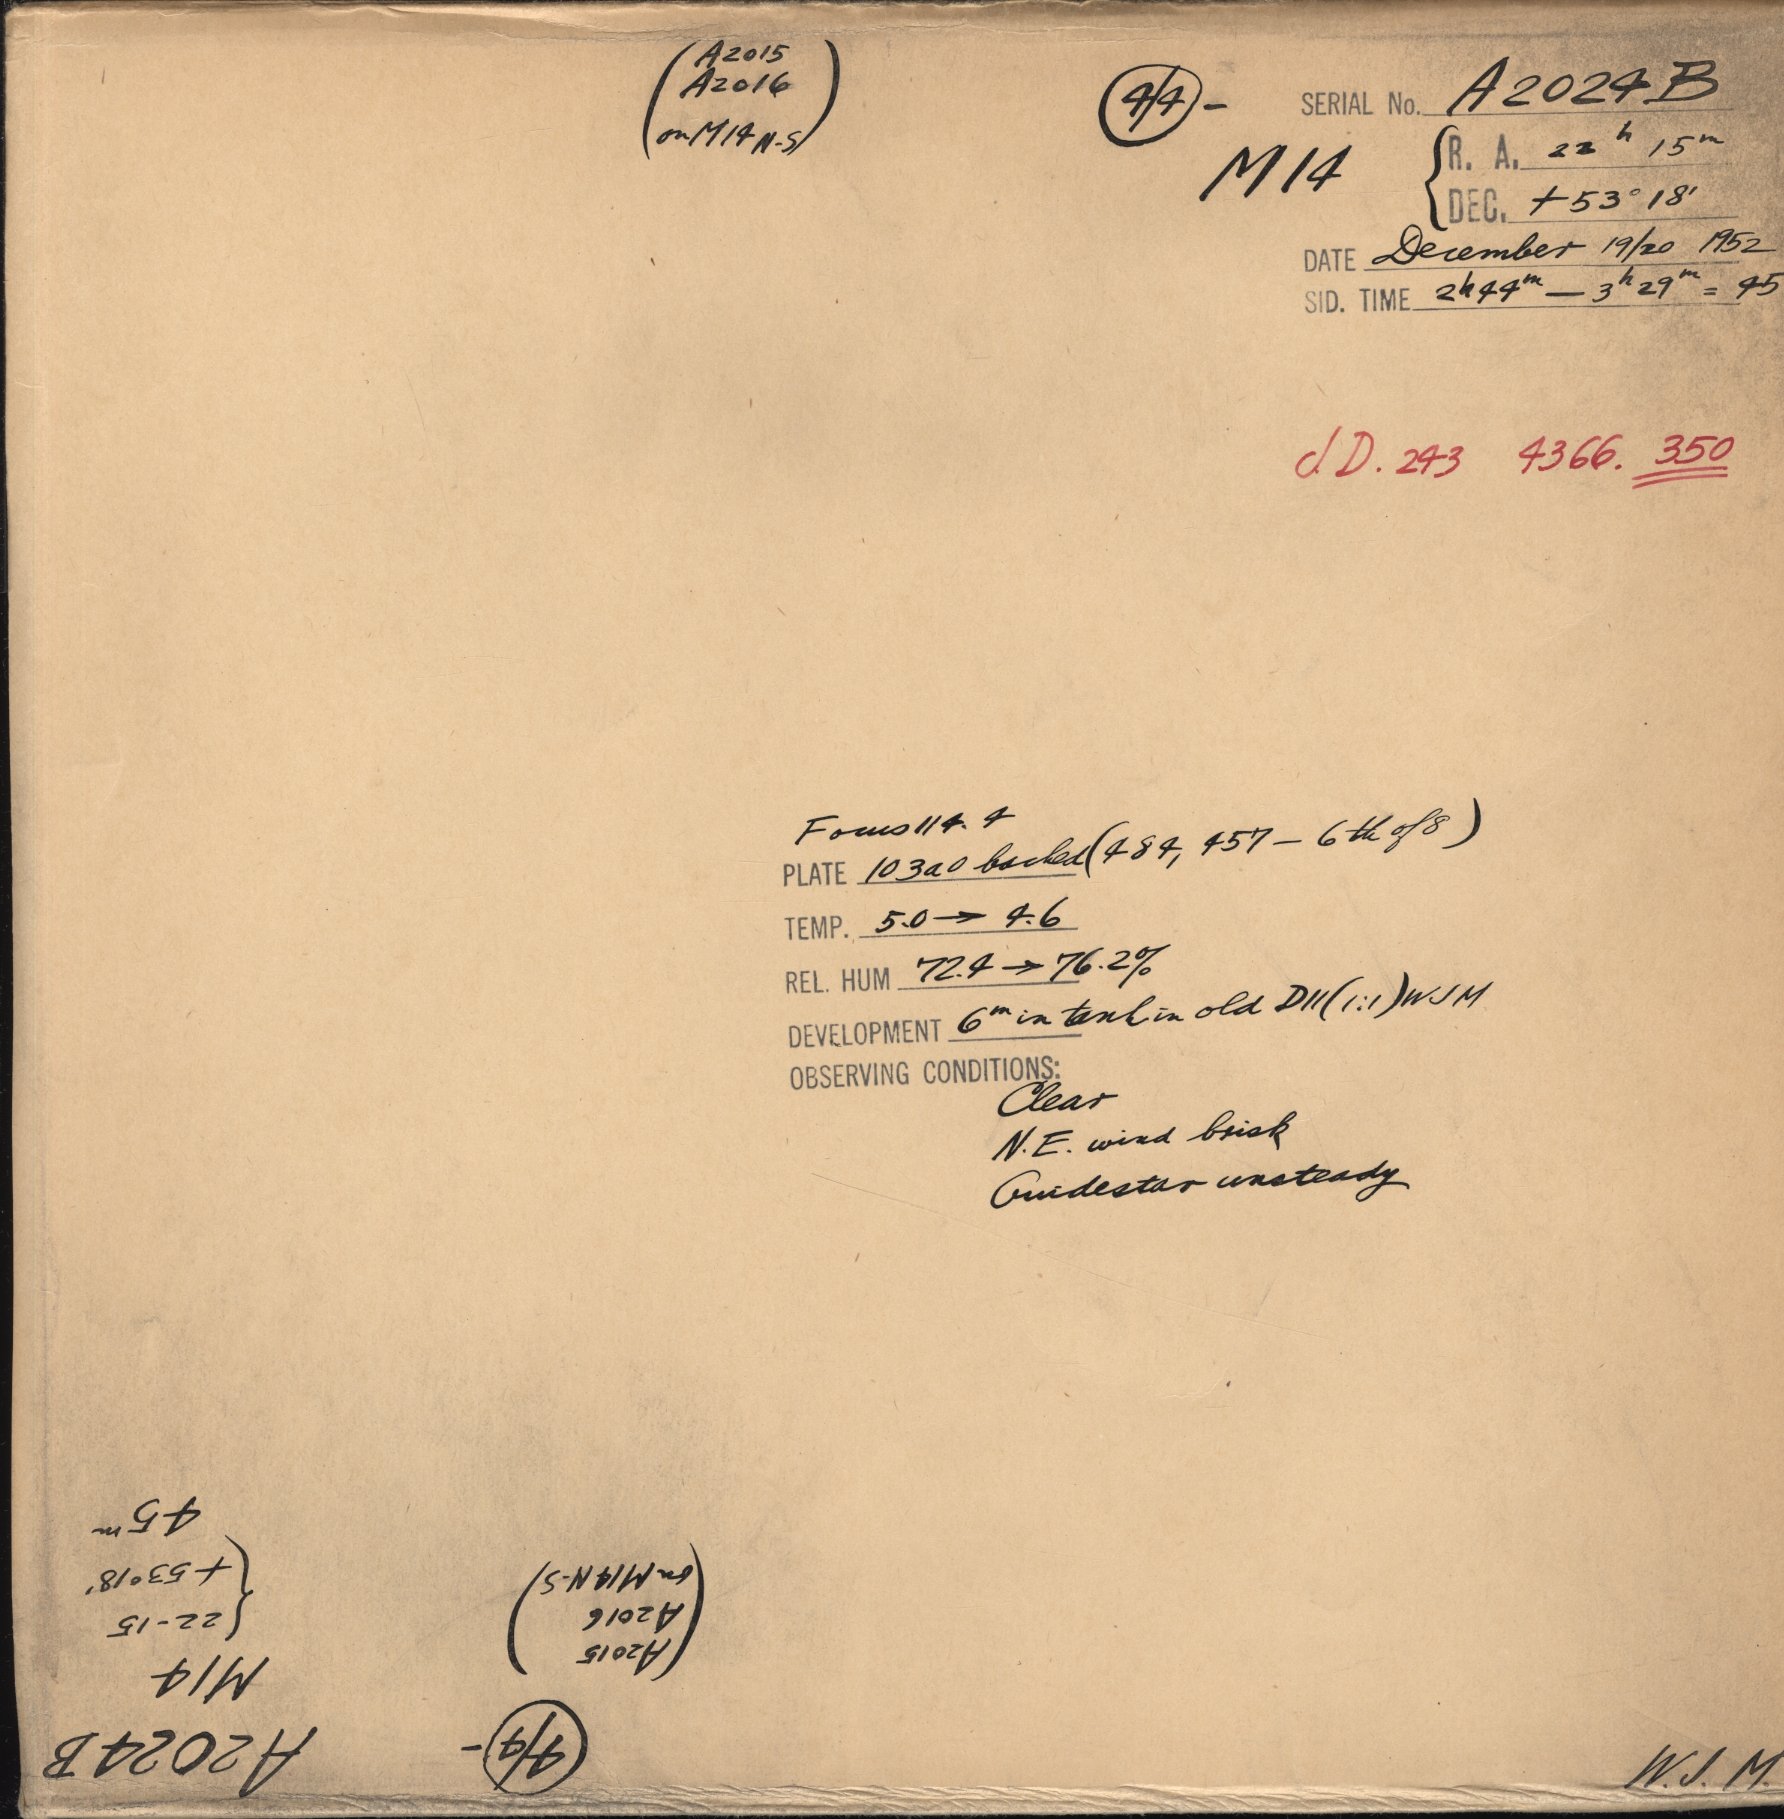 (A2015
A2016
on M14 N-S)
4/4 -
SERIAL No. A2024B
M14
R. A. 22h 15m
DEC. +53° 18'
DATE December 19/20 1952
SID. TIME 2h44m — 3h29m = 45
J.D. 243 4366. 350
Focus 114.4
PLATE 103a0 backed (484, 457 – 6th of 8)
TEMP. 5.0 → 4.6
REL. HUM 72.4 → 76.2%
DEVELOPMENT 6m in tank in old D11 (1:1) WJM
OBSERVING CONDITIONS:
Clear
N.E. wind brisk
Guidestar unsteady
W.J.M.
4/4 -
A2024B
M14
22-15
+53°18'
45m
(A2015
A2016
on M14 N-S)